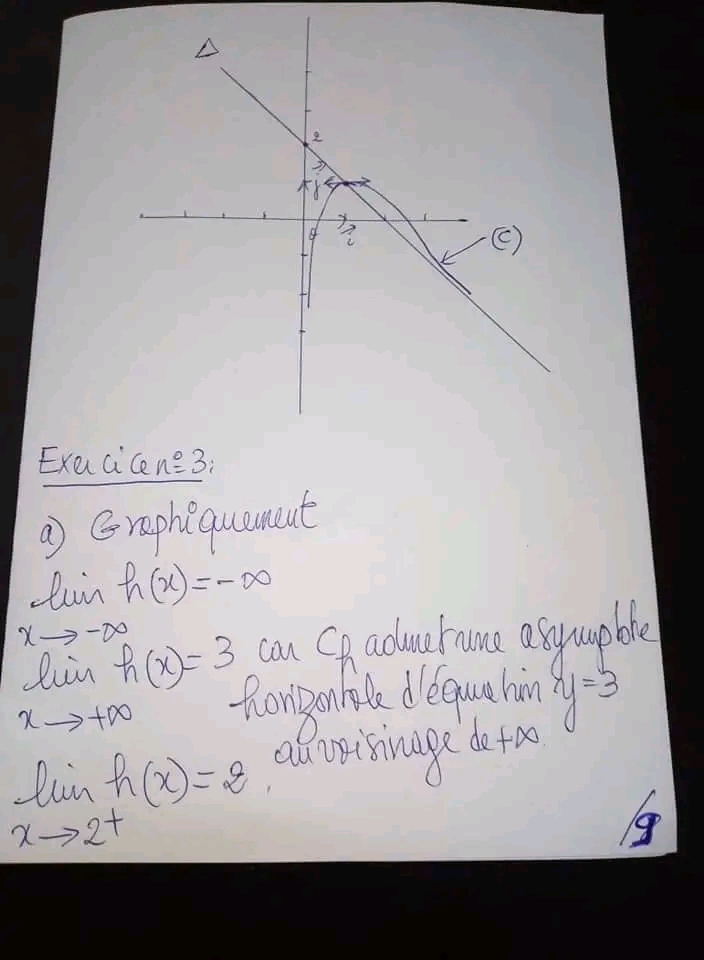 Δ
2
j
0
i
(C)
Exercice n° 3:
a) Graphiquement
lim h(x) = -∞
x → -∞
lim h(x) = 3 car Ch admet une asymptote
x → +∞
horizontale d'équation y = 3
au voisinage de +∞
lim h(x) = 2.
x → 2+
/9